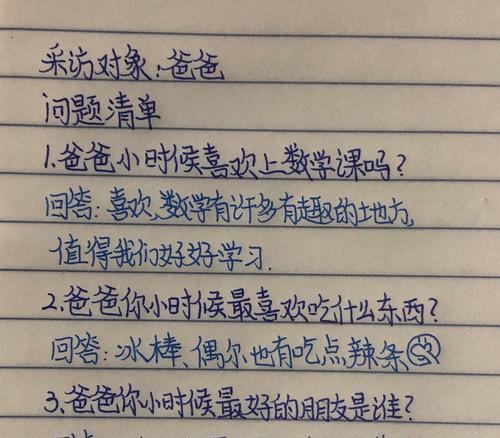 采访对象:爸爸
问题清单
1.爸爸小时候喜欢上数学课吗?
回答:喜欢,数学有许多有趣的地方,
值得我们好好学习.
2.爸爸你小时候最喜欢吃什么东西?
回答:冰棒、偶尔也有吃点辣条
3.爸爸你小时候最好的朋友是谁?